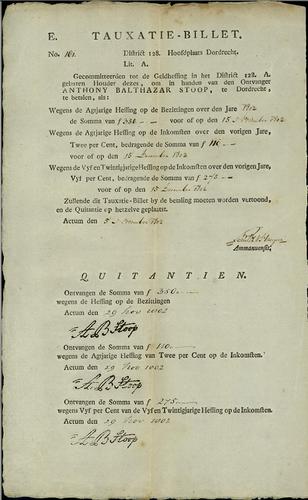 E. TAUXATIE-BILLET.
No. 161. District 128. Hoofdplaats Dordrecht.
Lit. A.
Gecommitteerden tot de Geldheffing in het District 128. A.
gelasten Houder dezes, om in handen van den Ontvanger
ANTHONY BALTHAZAR STOOP, te Dordrecht,
te betalen, als:
Wegens de Agtjarige Heffing op de Bezittingen over den Jare 1802
de Somma van ƒ 350 - - voor of op den 15 December 1802
Wegens de Agtjarige Heffing op de Inkomsten over den vorigen Jare,
Twee per Cent, bedragende de Somma van ƒ 110 - -
voor of op den 15 December 1802
Wegens de Vyf en Twintigjarige Heffing op de Inkomsten over den vorigen Jare,
Vyf per Cent, bedragende de Somma van ƒ 275 - -
voor of op den 15 December 1802
Zullende dit Tauxatie-Billet by de betaling moeten worden vertoond,
en de Quitantie op hetzelve geplaatst.
Actum den 5 1802
Ammanuensis.
QUITANTIEN.
Ontvangen de Somma van ƒ 350
wegens de Heffing op de Bezittingen
Actum den 29 Nov 1802
A B Stoop
Ontvangen de Somma van ƒ 110
wegens de Agtjarige Heffing van Twee per Cent op de Inkomsten.
Actum den 29 Nov 1802
A B Stoop
Ontvangen de Somma van ƒ 275
wegens Vyf per Cent van de Vyf en Twintigjarige Heffing op de Inkomsten.
Actum den 29 Nov 1802
A B Stoop